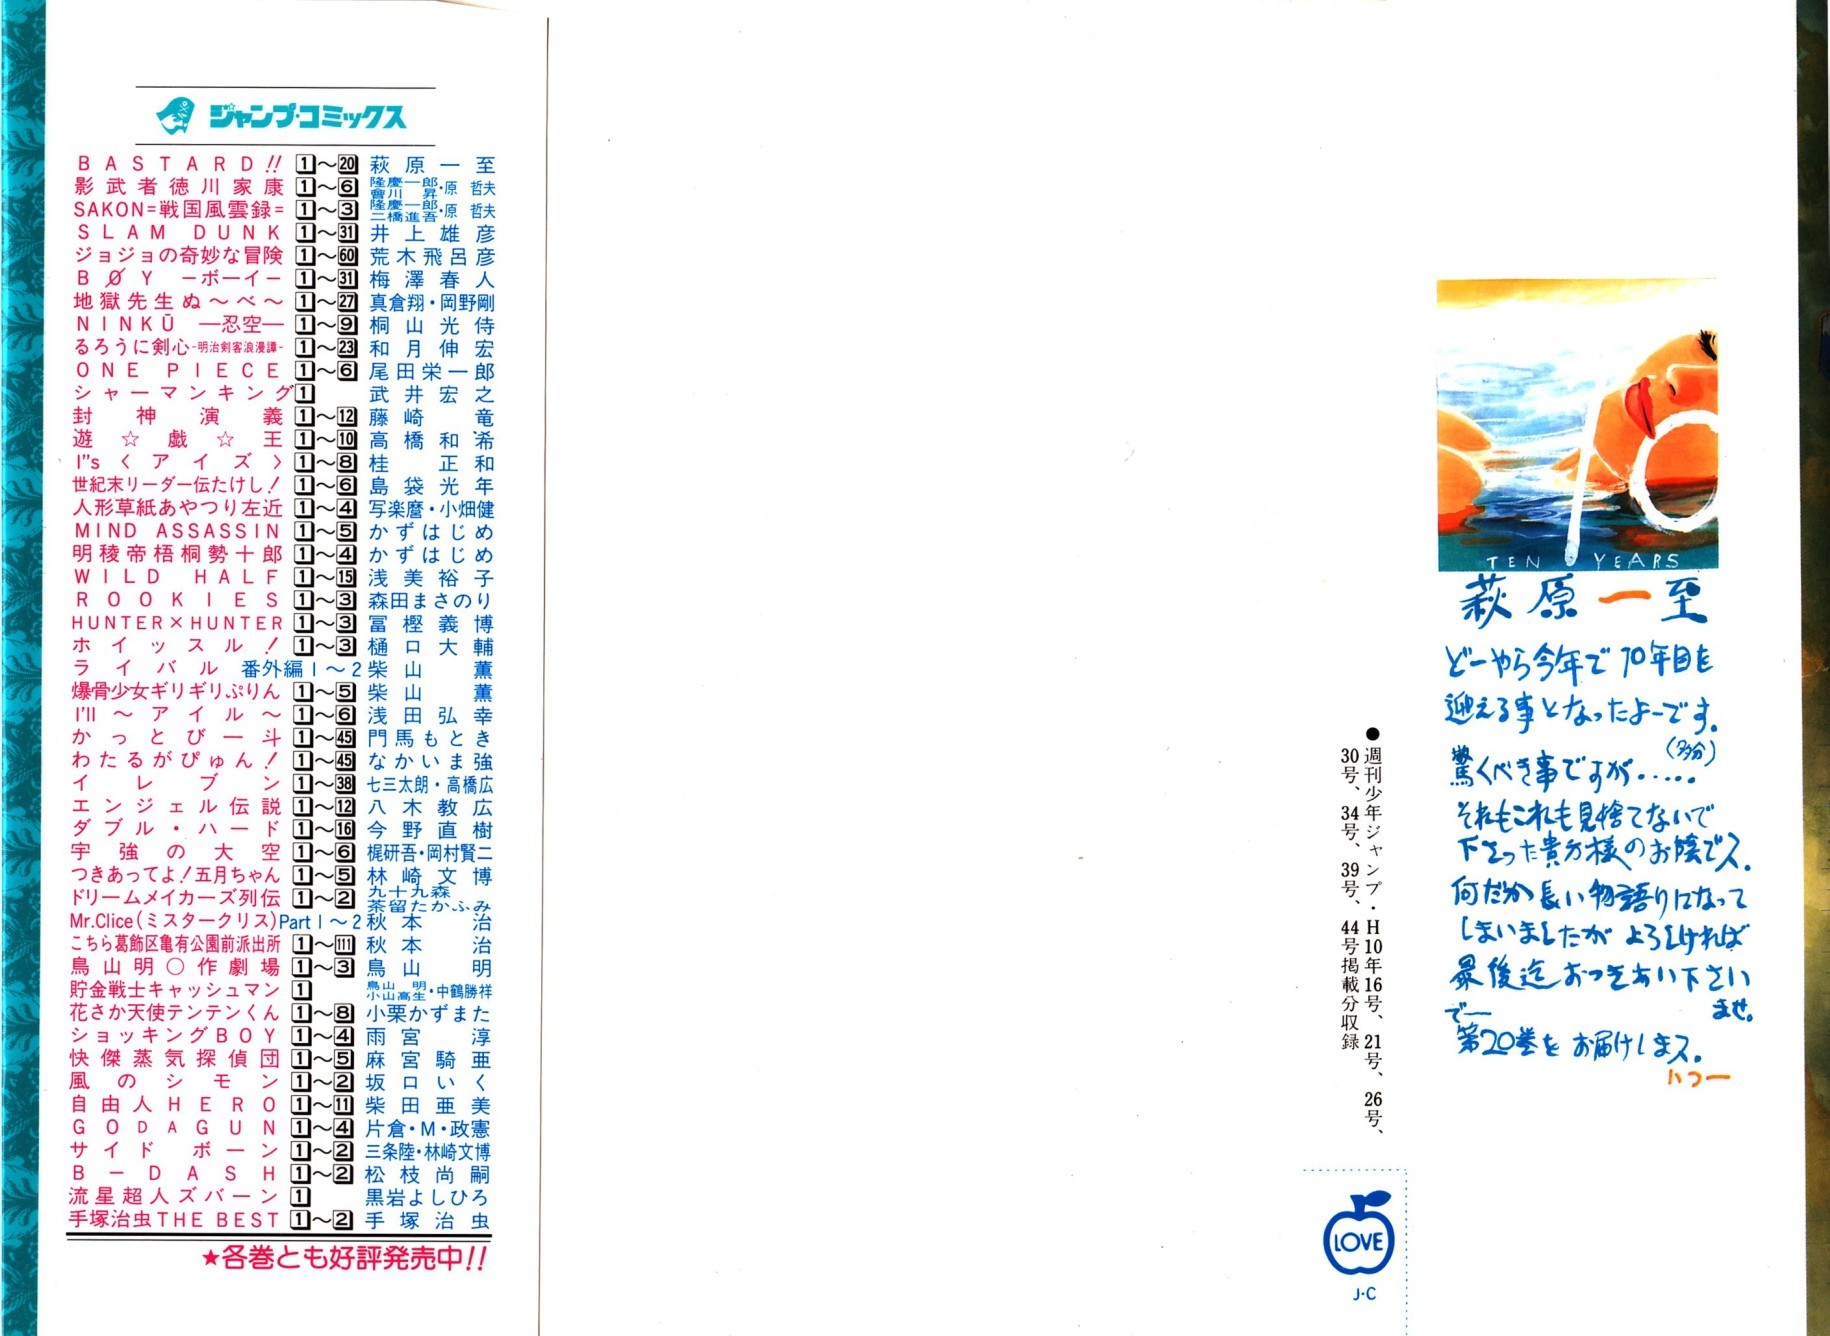 ジャンプ・コミックス
BASTARD!! 1〜20 萩原一至
影武者徳川家康 1〜6 隆慶一郎・會川昇・原哲夫
SAKON=戦国風雲録= 1〜3 隆慶一郎・二橋進吾・原哲夫
SLAM DUNK 1〜31 井上雄彦
ジョジョの奇妙な冒険 1〜60 荒木飛呂彦
BØY −ボーイ− 1〜31 梅澤春人
地獄先生ぬ〜べ〜 1〜27 真倉翔・岡野剛
NINKŪ —忍空— 1〜9 桐山光侍
るろうに剣心-明治剣客浪漫譚- 1〜23 和月伸宏
ONE PIECE 1〜6 尾田栄一郎
シャーマンキング 1 武井宏之
封神演義 1〜12 藤崎竜
遊☆戯☆王 1〜10 高橋和希
I"s〈アイズ〉 1〜8 桂正和
世紀末リーダー伝たけし! 1〜6 島袋光年
人形草紙あやつり左近 1〜4 写楽麿・小畑健
MIND ASSASSIN 1〜5 かずはじめ
明稜帝梧桐勢十郎 1〜4 かずはじめ
WILD HALF 1〜15 浅美裕子
ROOKIES 1〜3 森田まさのり
HUNTER×HUNTER 1〜3 冨樫義博
ホイッスル! 1〜3 樋口大輔
ライバル 番外編1〜2 柴山薫
爆骨少女ギリギリぷりん 1〜5 柴山薫
I'll 〜アイル〜 1〜6 浅田弘幸
かっとび一斗 1〜45 門馬もとき
わたるがぴゅん! 1〜45 なかいま強
イレブン 1〜38 七三太朗・高橋広
エンジェル伝説 1〜12 八木教広
ダブル・ハード 1〜16 今野直樹
宇強の大空 1〜6 梶研吾・岡村賢二
つきあってよ!五月ちゃん 1〜5 林崎文博
ドリームメイカーズ列伝 1〜2 九十九森 茶留たかふみ
Mr.Clice(ミスタークリス) Part1〜2 秋本治
こちら葛飾区亀有公園前派出所 1〜111 秋本治
鳥山明○作劇場 1〜3 鳥山明
貯金戦士キャッシュマン 1 鳥山明 小山高生・中鶴勝祥
花さか天使テンテンくん 1〜8 小栗かずまた
ショッキングBOY 1〜4 雨宮淳
快傑蒸気探偵団 1〜5 麻宮騎亜
風のシモン 1〜2 坂口いく
自由人HERO 1〜11 柴田亜美
GODAGUN 1〜4 片倉・M・政憲
サイドボーン 1〜2 三条陸・林崎文博
B−DASH 1〜2 松枝尚嗣
流星超人ズバーン 1 黒岩よしひろ
手塚治虫THE BEST 1〜2 手塚治虫
★各巻とも好評発売中!!
●週刊少年ジャンプ・H10年16号、21号、26号、
30号、34号、39号、44号掲載分収録
LOVE
J・C
10
TEN YEARS
萩原一至
どーやら今年で10年目を
迎える事となったよーです。
(多分)
驚くべき事ですが……
それもこれも見捨てないで
下さった貴方様のお陰でス。
何だか長い物語りになって
しまいましたがよろしければ
最後迄おつきあい下さい
ませ。
でー
第20巻をお届けしまス。
ハフー